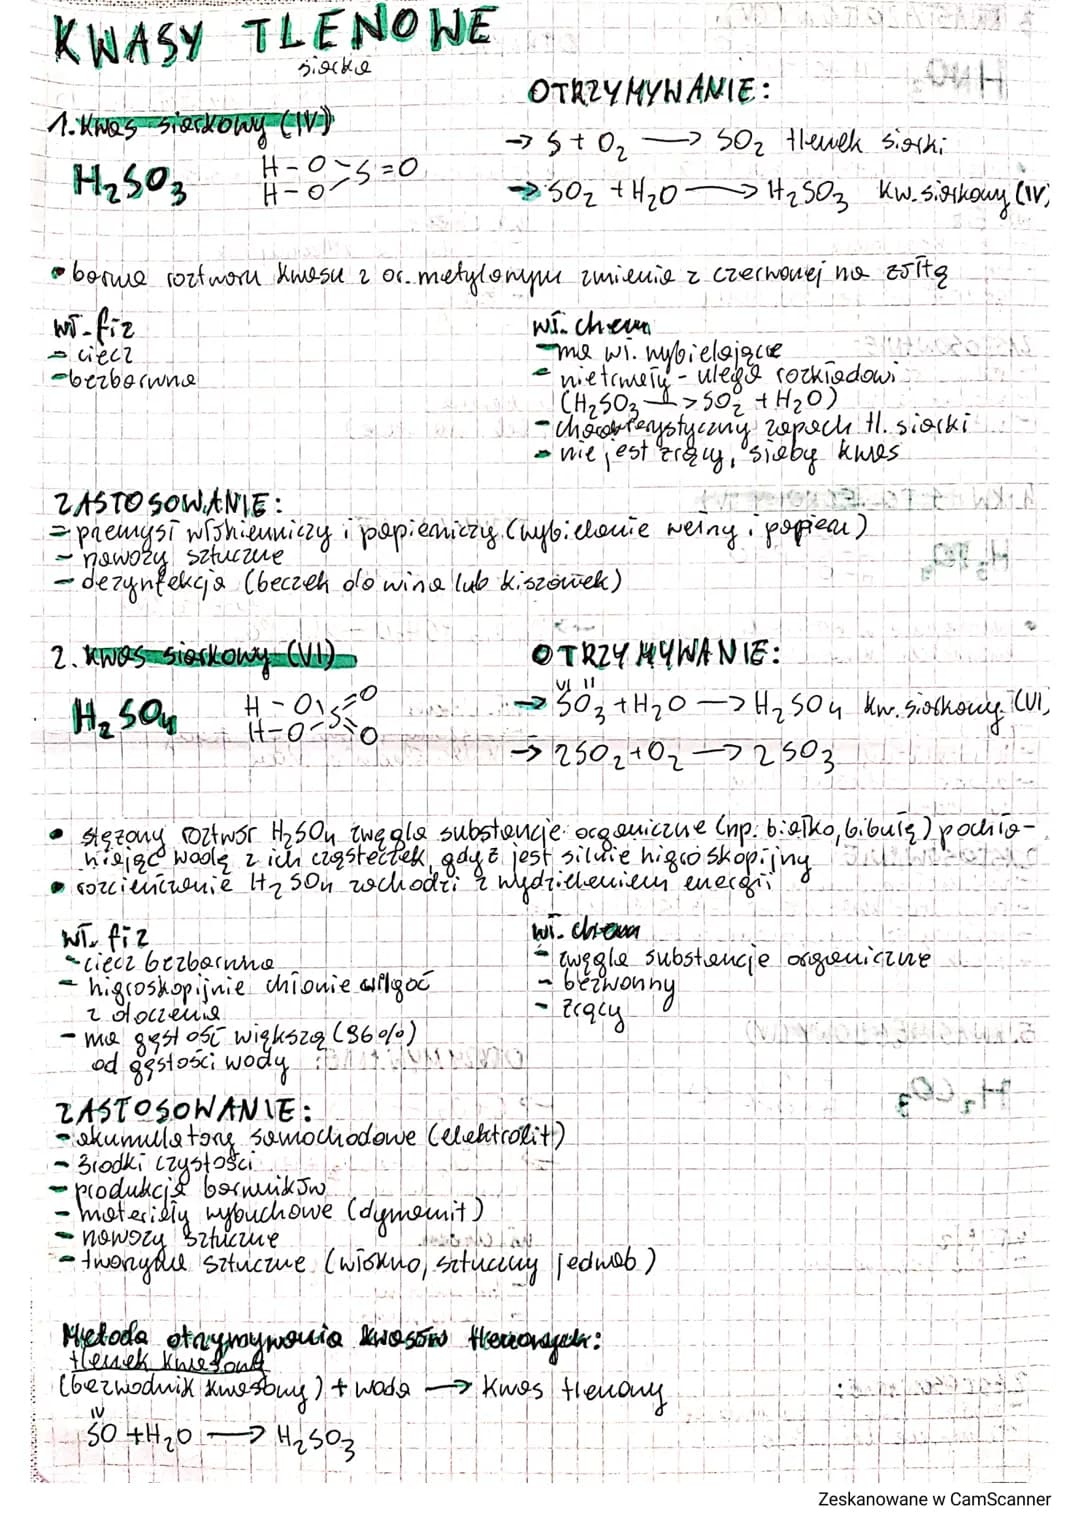 KWASY TLENOWE
siarka
1. Kwas siarkowy (IV)
H₂SO₃
H-O
H-O
S=O
OTRZYMYWANIE:
→ S + O₂ → SO₂ tlenek siarki
→ SO₂ + H₂O → H₂SO₃ kw. siarkowy (IV)
• barwa roztworu kwasu z or. metylowym zmienia z czerwonej na żółtą
wł. fiz
- ciecz
- bezbarwna
wł. chem
- ma wł. wybielające
- nietrwały - ulega rozkładowi
(H₂SO₃ → SO₂ + H₂O)
- charakterystyczny zapach tl. siarki
- nie jest żrący, słaby kwas
ZASTOSOWANIE:
- przemysł włókienniczy i papierniczy (wybielanie wełny i papieru)
- nawozy sztuczne
- dezynfekcja (beczek do wina lub kiszonek)
2. Kwas siarkowy (VI)
H₂SO₄
H-O
H-O
S
=O
=O
OTRZYMYWANIE:
VI II
→ SO₃ + H₂O → H₂SO₄ kw. siarkowy (VI)
→ 2SO₂ + O₂ → 2SO₃
• stężony roztwór H₂SO₄ zwęgla substancje organiczne (np. białko, bibułę) pochła-
niając wodę z ich cząsteczek, gdyż jest silnie higroskopijny
• rozcieńczanie H₂SO₄ zachodzi z wydzieleniem energii
wł. fiz
- ciecz bezbarwna
- higroskopijnie chłonie wilgoć
z otoczenia
- ma gęstość większą (96%)
od gęstości wody
wł. chem
- zwęgla substancje organiczne
- bezwonny
- żrący
ZASTOSOWANIE:
- akumulatory samochodowe (elektrolit)
- środki czystości
- produkcja barwników
- materiały wybuchowe (dynamit)
- nawozy sztuczne
- tworzywa sztuczne (włókno, sztuczny jedwab)
Metoda otrzymywania kwasów tlenowych:
tlenek kwasowy
(bezwodnik kwasowy) + woda → kwas tlenowy
IV
SO + H₂O → H₂SO₃
Zeskanowane w CamScanner